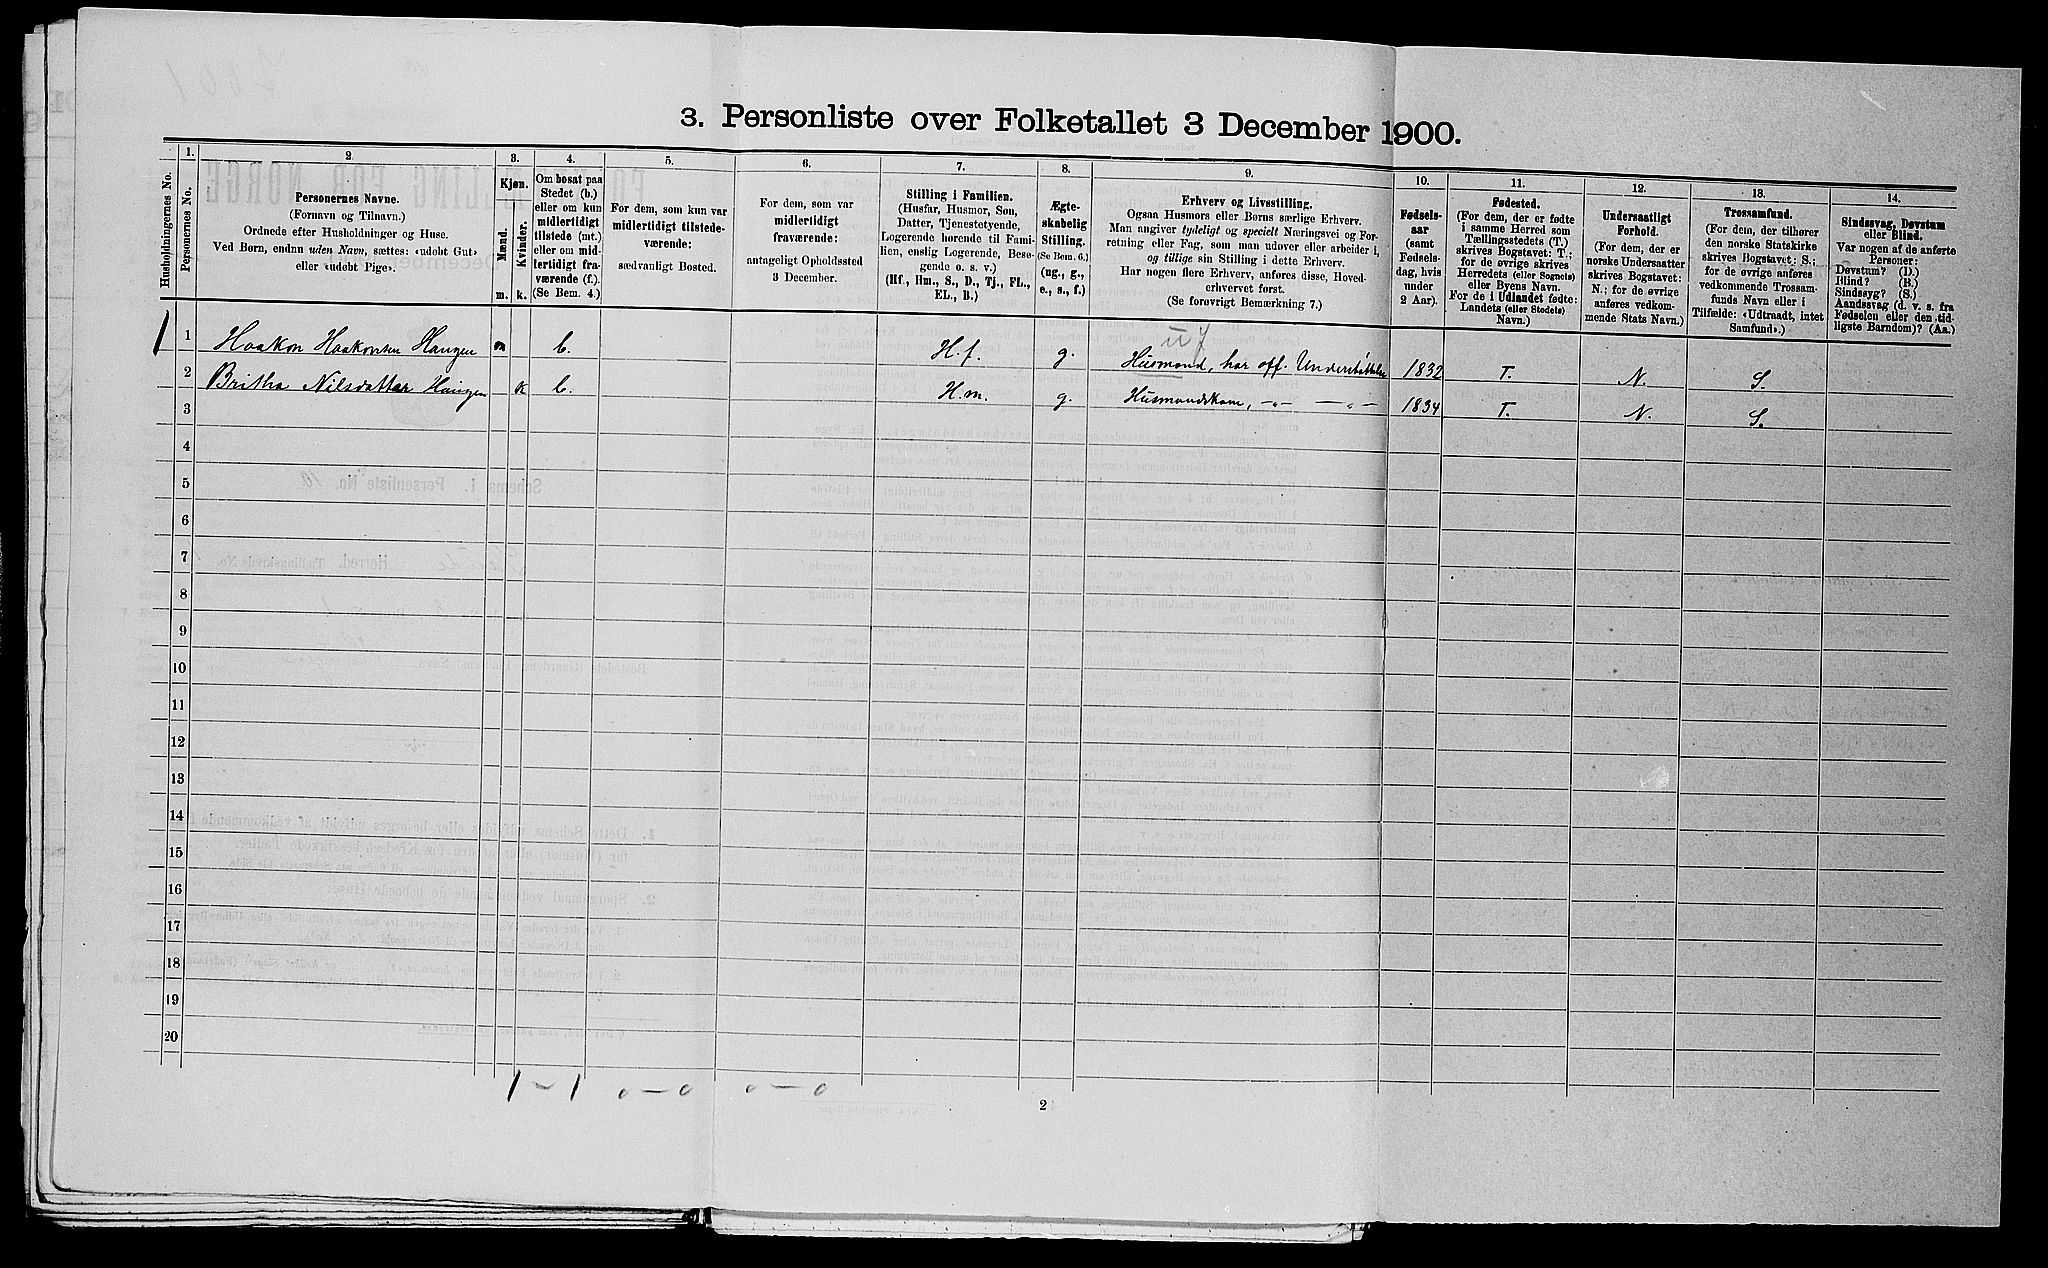 3. Personliste over Folketallet 3 December 1900.
Husholdningernes No.
1.
Personernes No.
2.
Personernes Navne.
(Fornavn og Tilnavn.)
Ordnede efter Husholdninger og Huse.
Ved Børn, endnu uden Navn, sættes: «udøbt Gut»
eller «udøbt Pige».
3.
Kjøn.
Mænd.
Kvinder.
m. k.
4.
Om bosat paa
Stedet (b.)
eller om kun
midlertidigt
tilstede (mt.)
eller om mid-
lertidigt fra-
værende (f.).
(Se Bem. 4.)
5.
For dem, som kun var
midlertidigt tilstede-
værende:
sædvanligt Bosted.
6.
For dem, som var
midlertidigt
fraværende:
antageligt Opholdssted
3 December.
7.
Stilling i Familien.
(Husfar, Husmor, Søn,
Datter, Tjenestetyende,
Logerende hørende til Fami-
lien, enslig Logerende, Besø-
gende o. s. v.)
(Hf., Hm., S., D., Tj., FL.,
EL., B.)
8.
Ægte-
skabelig
Stilling.
(Se Bem. 6.)
(ug., g.,
e., s., f.)
9.
Erhverv og Livsstilling.
Ogsaa Husmors eller Børns særlige Erhverv.
Man angiver tydeligt og specielt Næringsvei og For-
retning eller Fag, som man udøver eller arbeider i,
og tillige sin Stilling i dette Erhverv.
Har nogen flere Erhverv, anføres disse, Hoved-
erhvervet først.
(Se forøvrigt Bemærkning 7.)
10.
Fødsels-
aar
(samt
Fødsels-
dag, hvis
under
2 Aar).
11.
Fødested.
(For dem, der er fødte
i samme Herred som
Tællingsstedets (T.)
skrives Bogstavet: T.;
for de øvrige skrives
Herredets (eller Sognets)
eller Byens Navn.
For de i Udlandet fødte:
Landets (eller Stedets)
Navn.)
12.
Undersaatligt
Forhold.
(For dem, der er
norske Undersaatter
skrives Bogstavet:
N.; for de øvrige
anføres vedkom-
mende Stats Navn.)
13.
Trossamfund.
(For dem, der tilhører
den norske Statskirke
skrives Bogstavet: S.;
for de øvrige anføres
vedkommende Trossam-
funds Navn eller i
Tilfælde: «Udtraadt, intet
Samfund».)
14.
Sindssvag, Døvstum
eller Blind.
Var nogen af de anførte
Personer:
Døvstum? (D.)
Blind? (B.)
Sindssyg? (S.)
Aandssvag (d. v. s. fra
Fødselen eller den tid-
ligste Barndom)? (Aa.)
1 1 Haakon Haakonsen Haugen m b. H.f. g. Husmand, har off. Understøttelse 1832 T. N. S.
2 Britha Nilsdatter Haugen k b. H.m. g. Husmandskone, -"- -"- 1834 T. N. S.
3
4
5
6
7
8
9
10
11
12
13
14
15
16
17
18
19
20
1 - 1 0 - 0 0 - 0
2